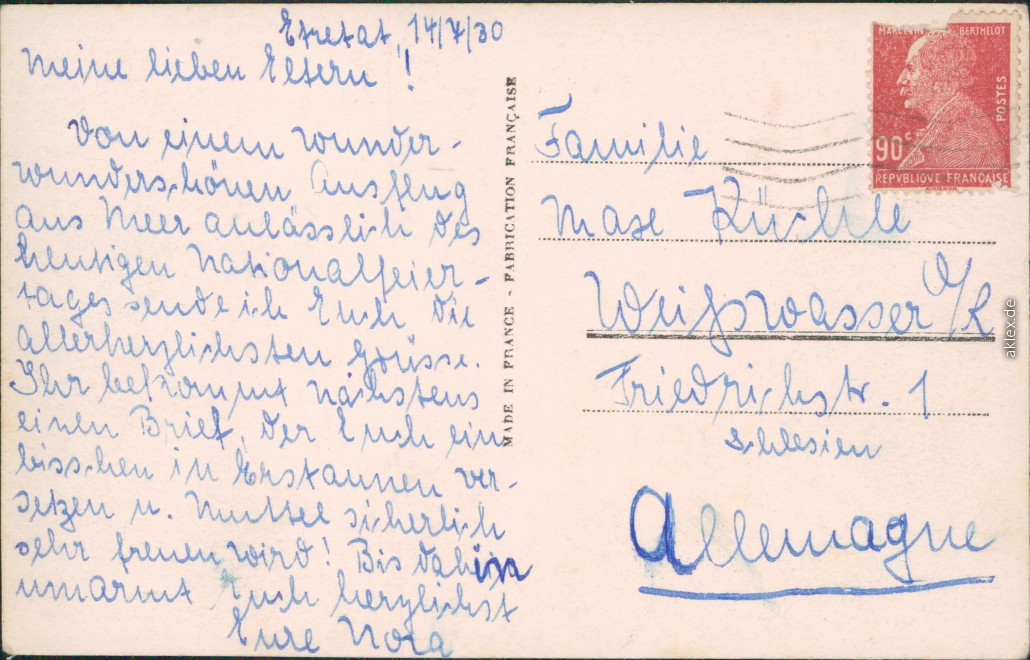 Etretat, 14/7/30
Meine lieben Eltern!
Von einem wunder-
wunderschönen Ausflug
ans Meer anlässlich des
heutigen Nationalfeier-
tages sende ich Euch die
allerherzlichsten Grüsse.
Ihr bekommt nächstens
einen Brief, der Euch ein
bisschen in Erstaunen ver-
setzen u. Muttel sicherlich
sehr freuen wird! Bis dahin
umarmt Euch herzlichst
Eure Nora
MADE IN FRANCE - FABRICATION FRANÇAISE
MARCELIN BERTHELOT
POSTES
90 c
REPVBLIQVE FRANÇAISE
Familie
Max Küchle
Weißwasser O/L
Friedrichstr. 1
Schlesien
Allemagne
aklex.de